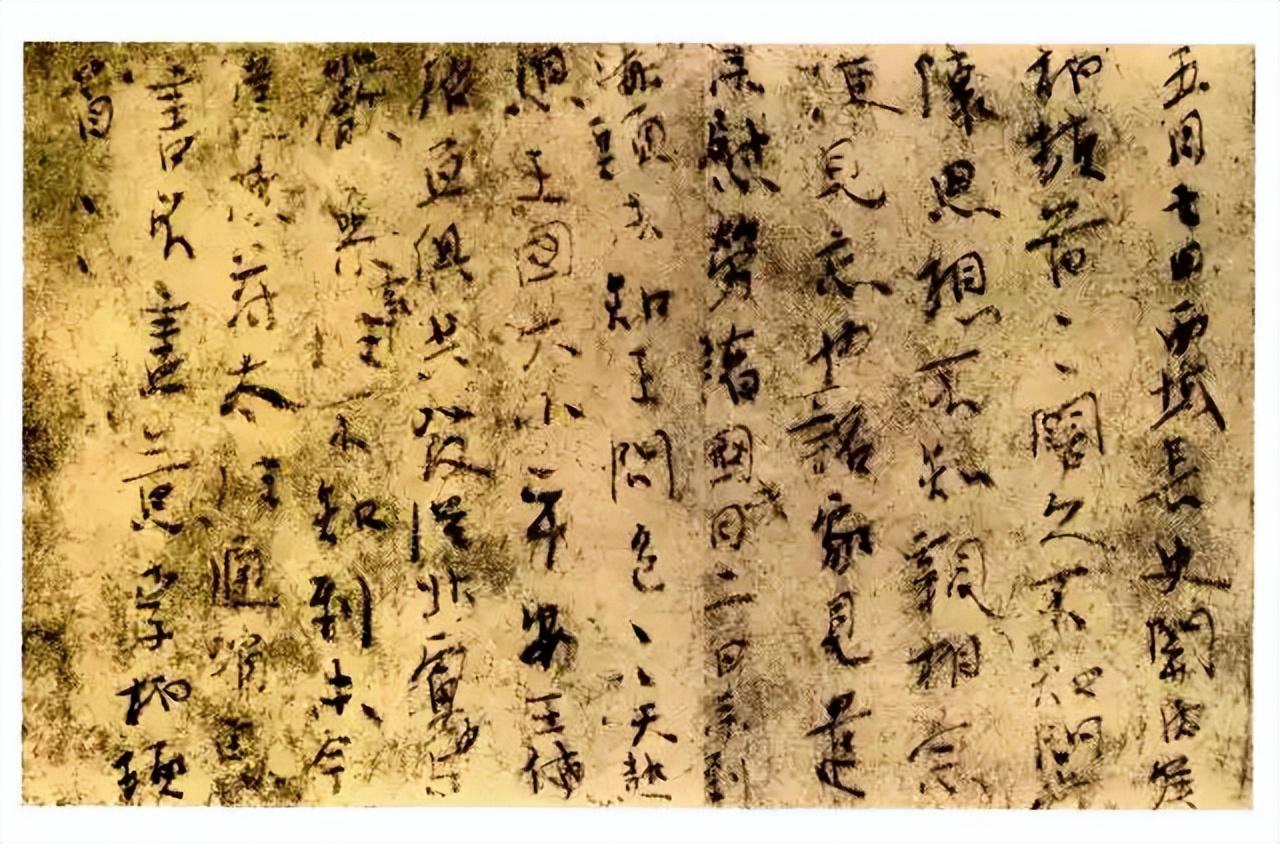 五月七日西域長史關內侯
柏頓首〻闊久不知問
懷思想不知親相念
便見忘也詔家見遣
來慰勞諸國月二日來到
海頭未知王問邑〻天熱
想王國大小平安王使
亘俱共發從北虜
嚴參事往不知到未今
遣使苻太往通消息
書不盡意李柏頓
首〻